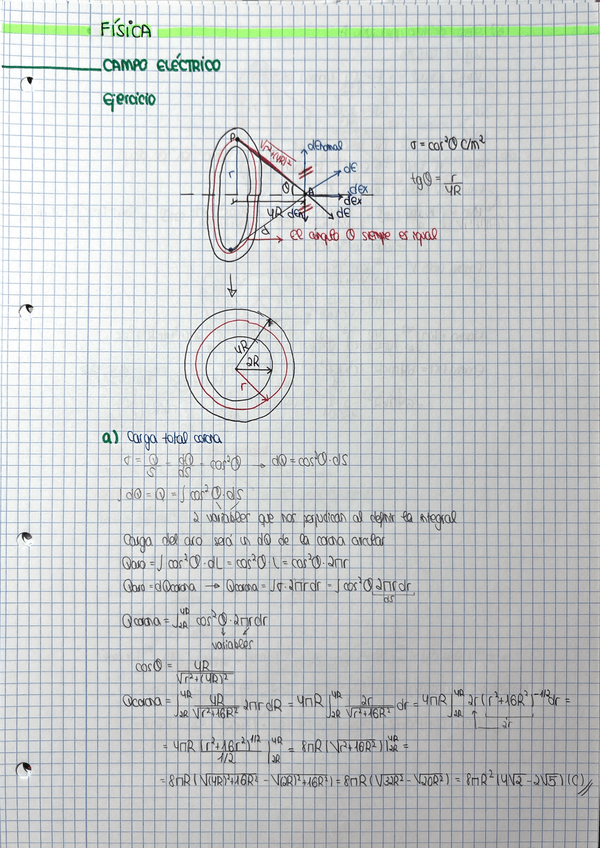 FÍSICA
CAMPO ELÉCTRICO
Ejercicio
P
√r²+(4R)²
dEtotal
r
θ
A
dE
dEx
dEx
dE
4R
d
σ = cos²θ C/m²
tgθ = r/4R
El angulo θ siempre es igual
4R
2R
r
a) Carga total corona
σ = Q/S = dQ/dS = cos²θ → dQ = cos²θ·dS
∫dQ = Q = ∫cos²θ·dS
2 variables que nos perjudican al definir la integral
Carga del aro será un dQ de la corona circular
Qaro = ∫cos²θ·dL = cos²θ·L = cos²θ·2πr
Qaro = dQcorona → Qcorona = ∫σ·2πrdr = ∫cos²θ 2πrdr
dS
Qcorona = ∫2R^4R cos²θ·2πrdr
variables
cosθ = 4R/√r²+(4R)²
Qcorona = ∫2R^4R 4R/√r²+16R² 2πr dR = 4πR ∫2R^4R 2r/√r²+16R² dr = 4πR ∫2R^4R 2r(r²+16R²)^-1/2 dr =
= 4πR (r²+16r²)^1/2 / 1/2 |2R^4R = 8πR (√r²+16R²)|2R^4R =
= 8πR(√(4R)²+16R² - √(2R)²+16R²) = 8πR(√32R² - √20R²) = 8πR²(4√2 - 2√5) (C)